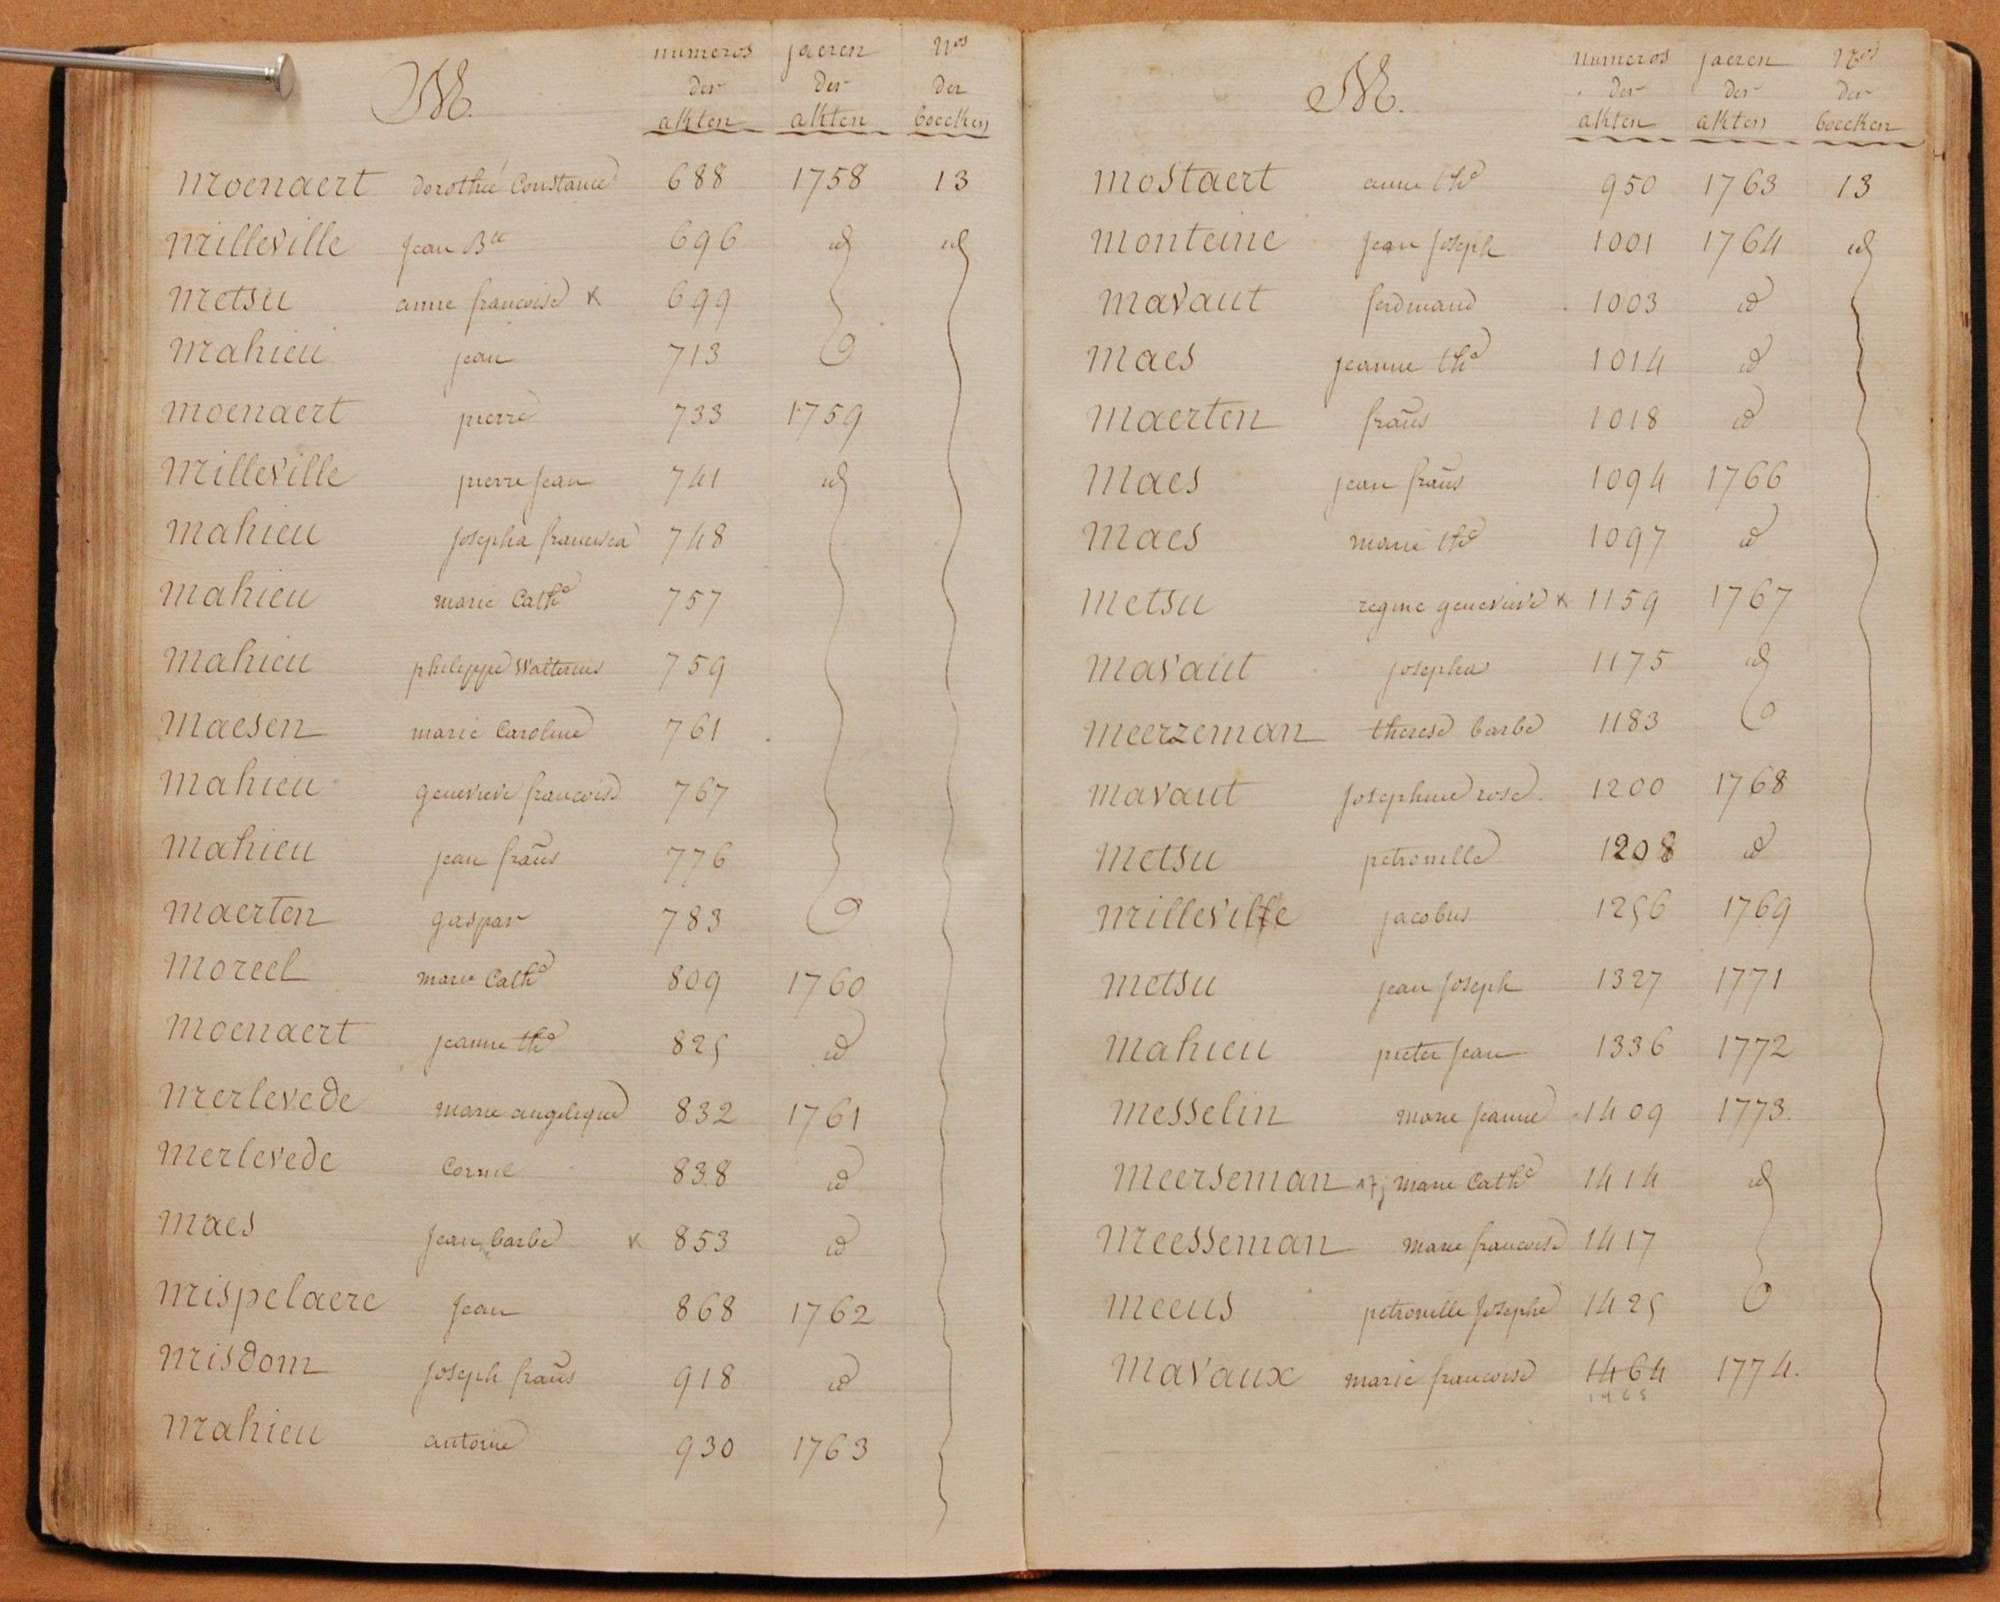 M.
numeros jaeren Nos
der der der
akten akten boecken
Moenaert dorothée Constance 688 1758 13
Milleville Jean Bte 696 id id
Metsu anne francoise x 699
Mahieu jean 713
moenaert pierre 733 1759
Milleville pierre jean 741 id
mahieu Josepha francisca 748
mahieu marie Cathe 757
mahieu philippe Walterus 759
maesen marie Caroline 761
mahieu genevieve francoise 767
mahieu jean frans 776
maerten gaspar 783
moreel marie Cathe 809 1760
moenaert jeanne the 825 id
Merlevede marie angelique 832 1761
merlevede Cornil 838 id
maes Jean barbe x 853 id
Mispelaere Jean 868 1762
Misdom Joseph frans 918 id
Mahieu antoine 930 1763
M.
numeros jaeren Nos
der der der
akten akten boecken
mostaert anne the 950 1763 13
monteine Jean Joseph 1001 1764 id
mavaut ferdinand 1003 id
maes jeanne the 1014 id
maerten frans 1018 id
maes jean frans 1094 1766
maes marie the 1097 id
metsu regine genevieve x 1159 1767
mavaut josepha 1175 id
meerzeman therese barbe 1183
mavaut Josephine rose. 1200 1768
metsu petronille 1208 id
Milleville jacobus 1256 1769
metsu jean Joseph 1327 1771
mahieu pieter Jean 1336 1772
messelin marie Jeanne 1409 1773.
meerseman marie Cathe 1414 id
Meesseman marie francoise 1417
meeus petronille Josephe 1425
mavaux marie francoise 1464 1774.
1465